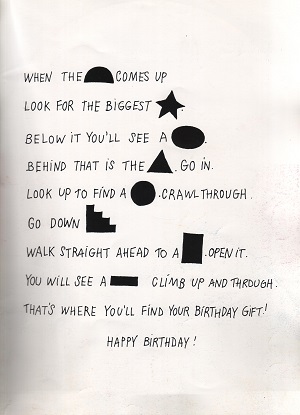 WHEN THE COMES UP
LOOK FOR THE BIGGEST
BELOW IT YOU'LL SEE A .
BEHIND THAT IS THE . GO IN.
LOOK UP TO FIND A . CRAWL THROUGH.
GO DOWN
WALK STRAIGHT AHEAD TO A . OPEN IT.
YOU WILL SEE A CLIMB UP AND THROUGH.
THAT'S WHERE YOU'LL FIND YOUR BIRTHDAY GIFT!
HAPPY BIRTHDAY!